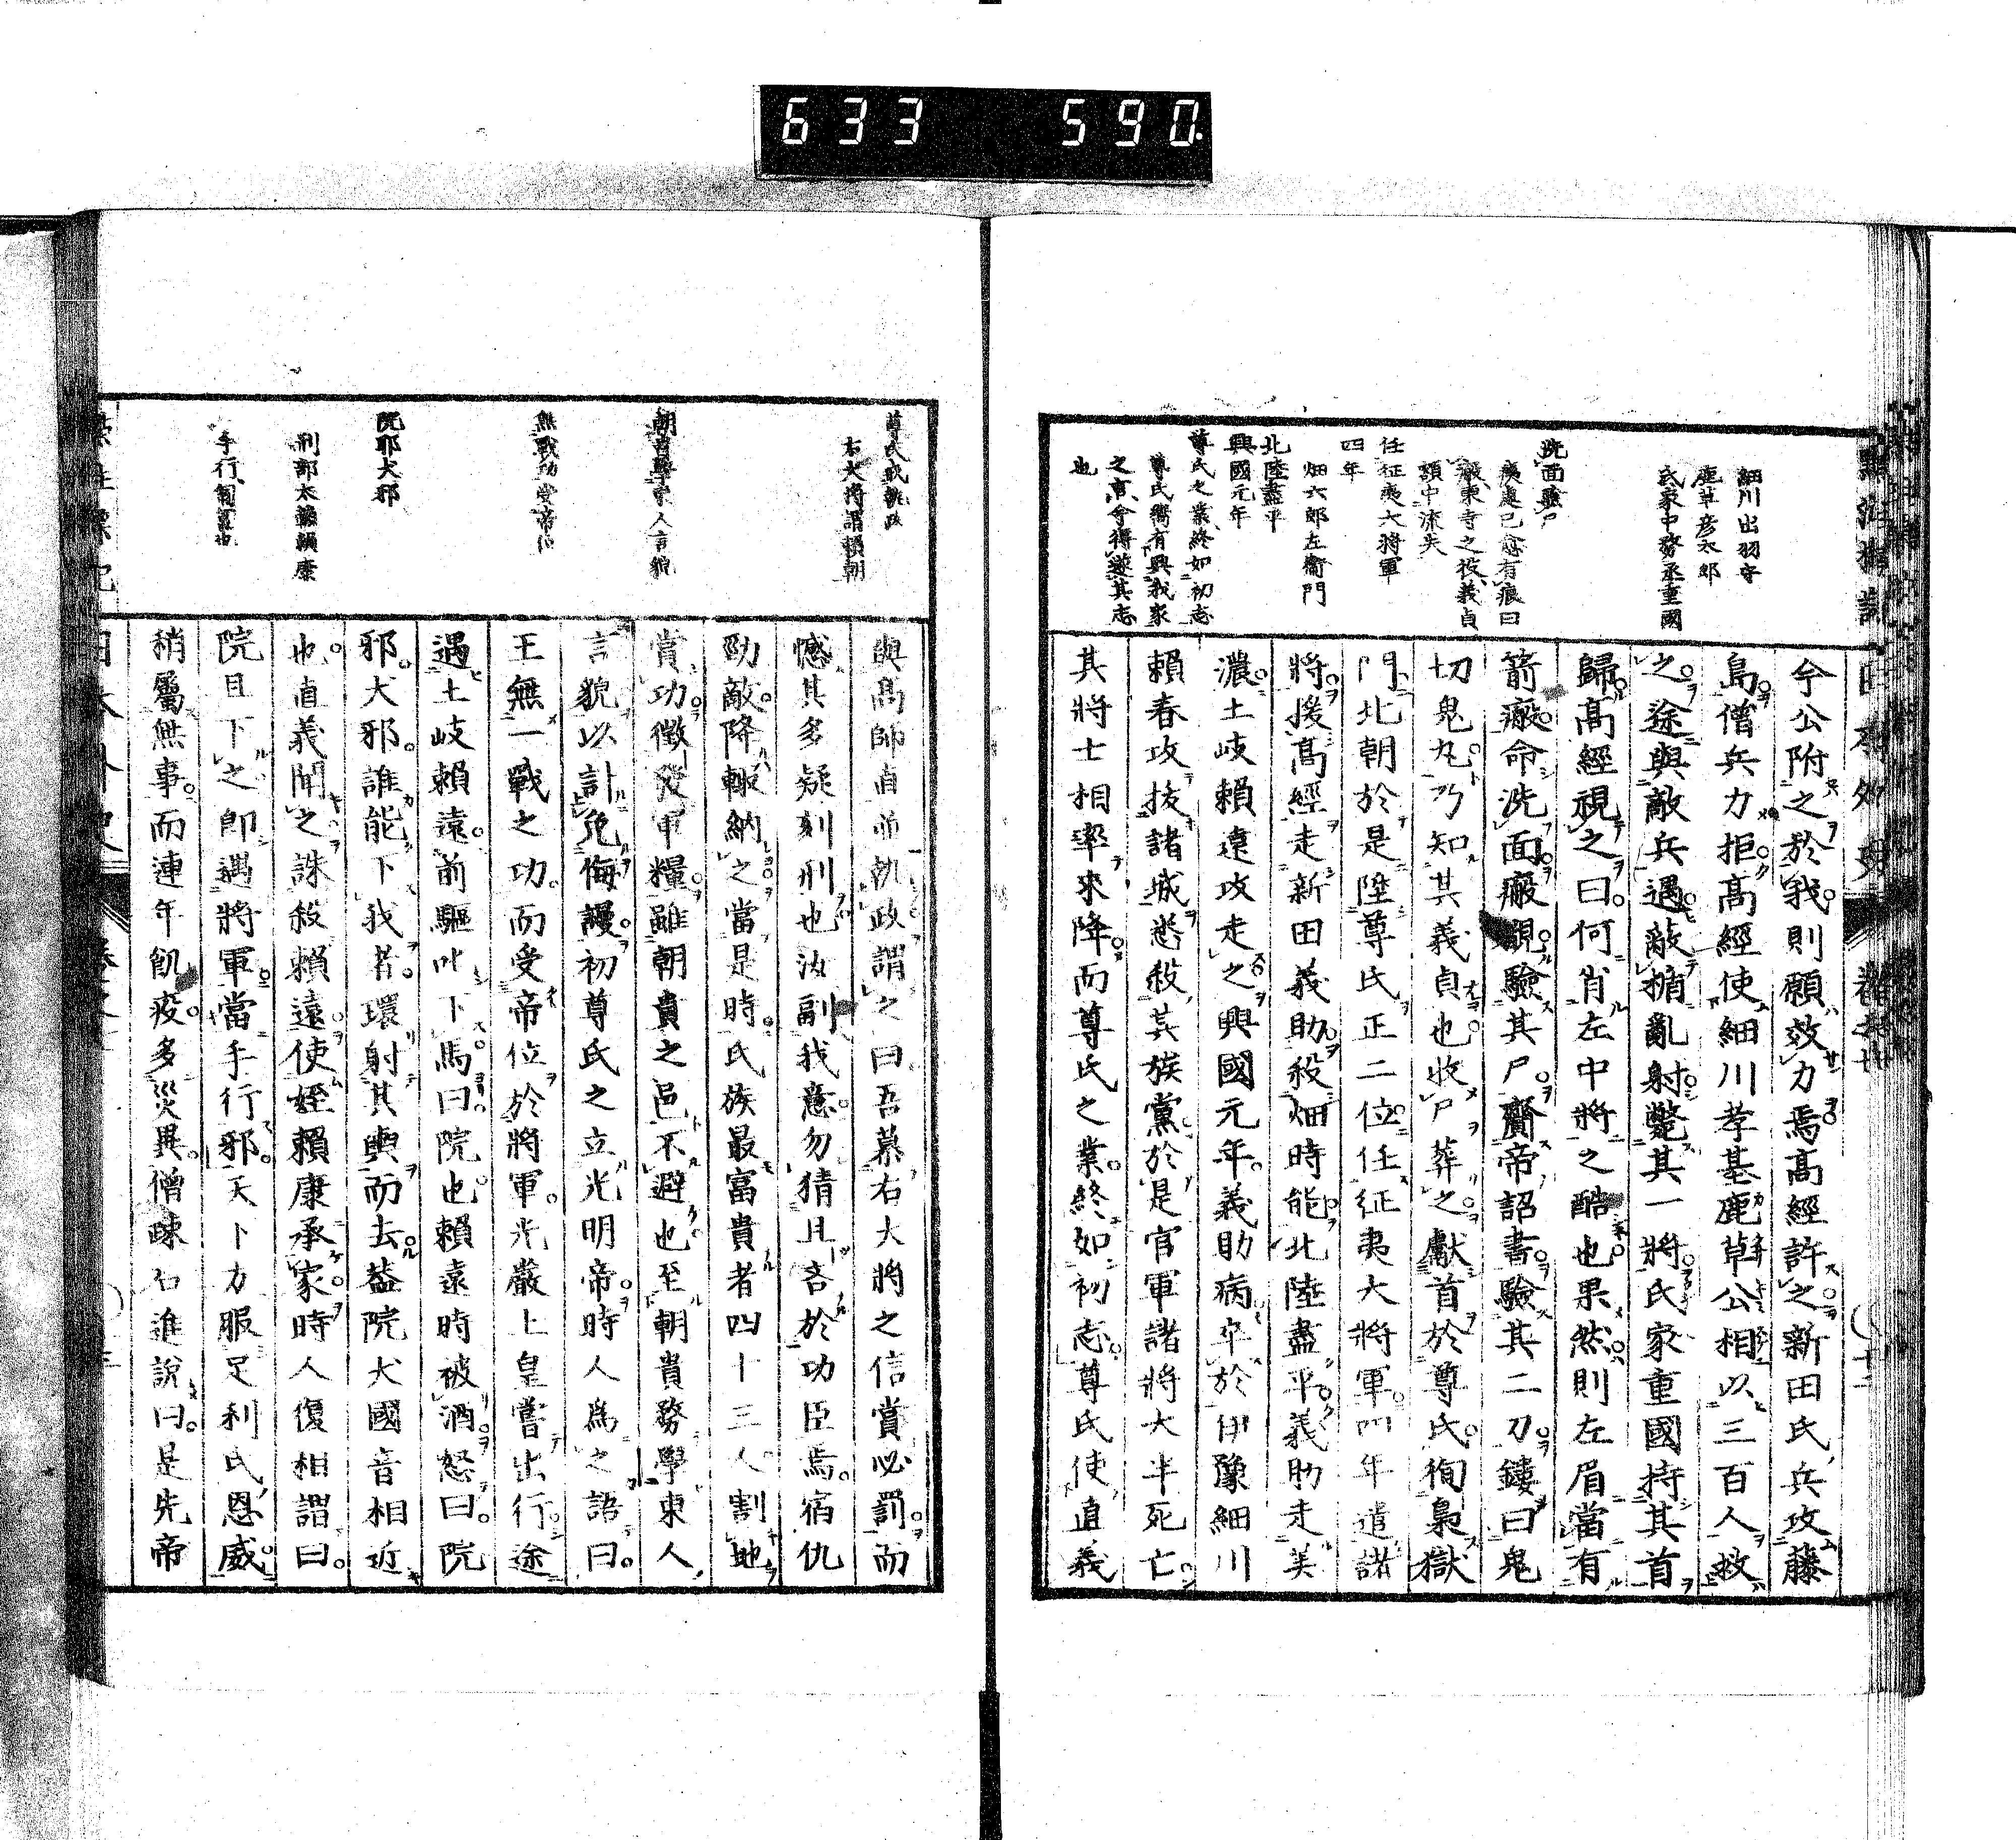 633 590
細川出羽守
鹿草彦太郎
氏家中務丞重國
洗面驗尸
瘢處已愈有痕曰
瘢東寺之役義貞
額中流矢
任征夷大將軍
四年
畑六郎左衞門
北陸盡平
興國元年
尊氏之業終如初志
尊氏嚮有興我家
之言今得遂其志
也
今公附之於我則願效力焉高經許之新田氏兵攻藤
島僧兵力拒高經使細川孝基鹿草公相以三百人救
之途與敵兵遇敵擠亂射斃其一將氏家重國持其首
歸高經視之曰何肖左中將之酷也果然則左眉當有
箭瘢命洗面瘢覩驗其尸齎帝詔書驗其二刀鏤曰鬼
切鬼丸乃知其義貞也收尸葬之獻首於尊氏徇梟獄
門北朝於是陞尊氏正二位任征夷大將軍四年遣諸
將援高經走新田義助殺畑時能北陸盡平義助走美
濃土岐賴遠攻走之興國元年義助病卒於伊豫細川
賴春攻拔諸城悉殺其族黨於是官軍諸將大半死亡
其將士相率來降而尊氏之業終如初志尊氏使直義
尊氏戒執政
右大將謂賴朝
朝貴學東人言貌
無戰功受帝位
院耶犬邪
刑部太輔賴康
手行
與高師直並執政謂之曰吾慕右大將之信賞必罰而
憾其多疑刻刑也汝副我意勿猜且吝於功臣焉宿仇
勁敵降輙納之當是時氏族最富貴者四十三人割地
賞功徵發軍糧雖朝貴之邑不避也至朝貴務學東人
言貌以計免侮謾初尊氏之立光明帝時人爲之語曰
王無一戰之功而受帝位於將軍光嚴上皇嘗出行途
遇土岐賴遠前驅叱下馬曰院也賴遠時被酒怒曰院
邪犬邪誰能下我者環射其輿而去蓋院犬國音相近
也直義聞之誅殺賴遠使姪賴康承家時人復相謂曰
院且下之卽遇將軍當手行邪天下方服足利氏恩威
稍屬無事而連年飢疫多災異僧疎石進説曰是先帝